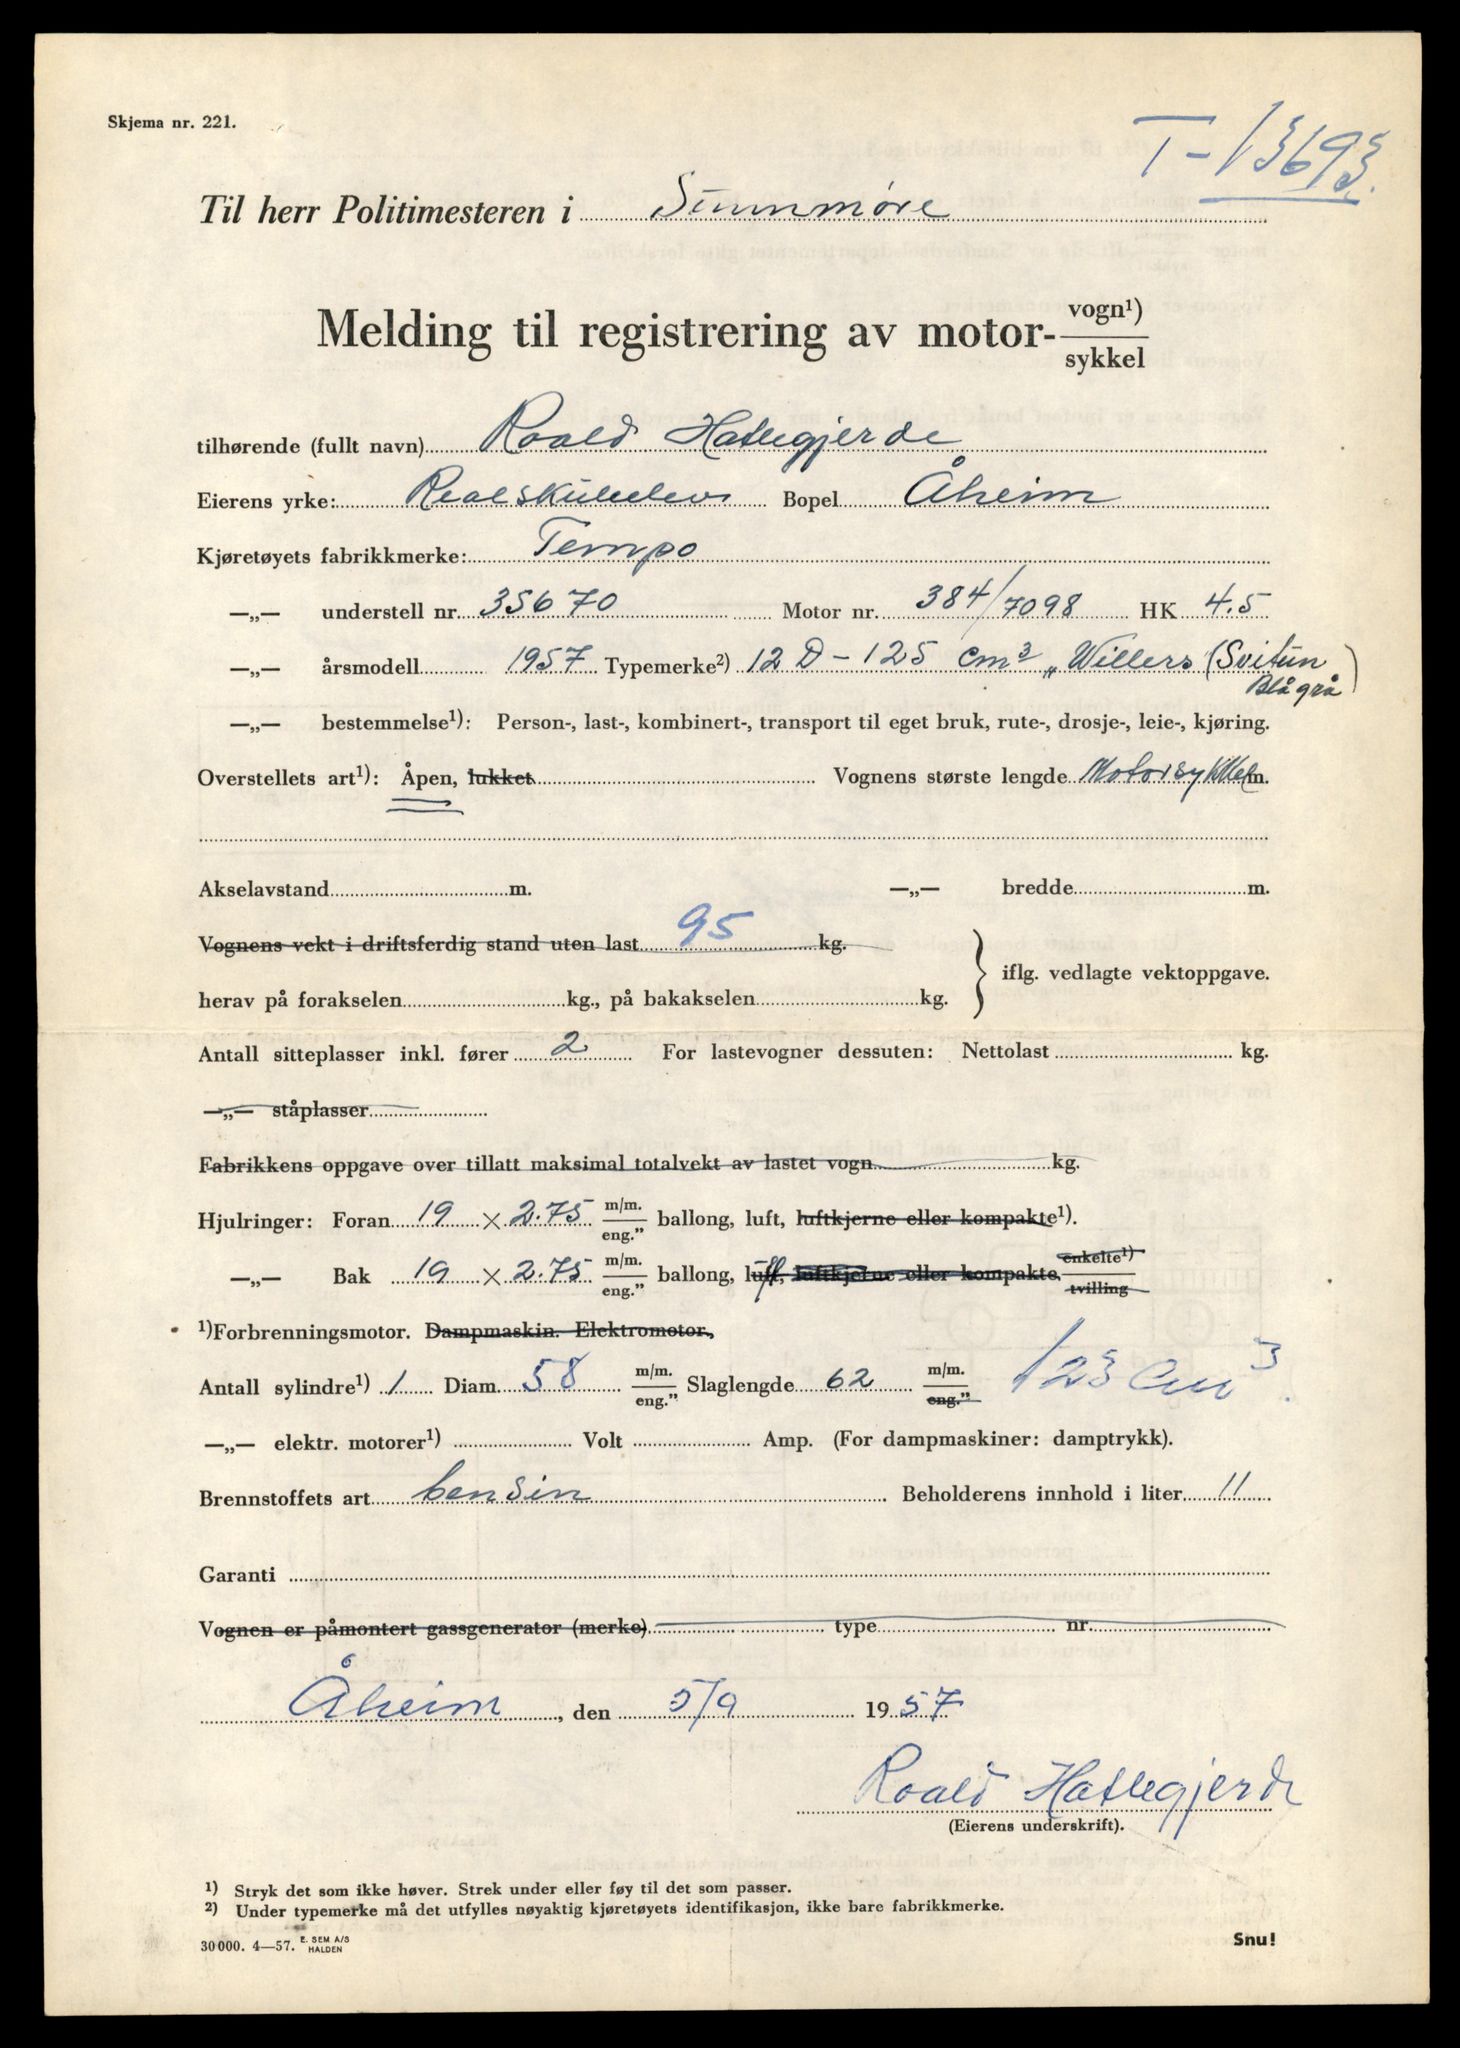 Skjema nr. 221.
T-13693.
Til herr Politimesteren i Sunnmøre
Melding til registrering av motor- vogn¹) / sykkel
tilhørende (fullt navn) Roald Hatlegjerde
Eierens yrke: Realskuleelev Bopel Åheim
Kjøretøyets fabrikkmerke: Tempo
—„— understell nr. 35670 Motor nr. 384/7098 HK 4.5
—„— årsmodell 1957 Typemerke²) 12 D - 125 cm³ „Willers (Svitun
Blågrå)
—„— bestemmelse¹): Person-, last-, kombinert-, transport til eget bruk, rute-, drosje-, leie-, kjøring.
Overstellets art¹): Åpen, lukket Vognens største lengde Motorsykkel m.
Akselavstand m. —„— bredde m.
Vognens vekt i driftsferdig stand uten last 95 kg.
iflg. vedlagte vektoppgave.
herav på forakselen kg., på bakakselen kg.
Antall sitteplasser inkl. fører 2 For lastevogner dessuten: Nettolast kg.
—„— ståplasser
Fabrikkens oppgave over tillatt maksimal totalvekt av lastet vogn kg.
Hjulringer: Foran 19 × 2.75 m/m. / eng." ballong, luft, luftkjerne eller kompakte¹).
—„— Bak 19 × 2.75 m/m. / eng." ballong, luft, luftkjerne eller kompakte. enkelte¹) / tvilling
¹)Forbrenningsmotor. Dampmaskin. Elektromotor.
Antall sylindre¹) 1 Diam. 58 m/m. / eng." Slaglengde 62 m/m. / eng." 123 cm³.
—„— elektr. motorer¹) Volt Amp. (For dampmaskiner: damptrykk).
Brennstoffets art bensin Beholderens innhold i liter 11
Garanti
Vognen er påmontert gassgenerator (merke) type nr.
Åheim, den 5/9 1957
Roald Hatlegjerde
(Eierens underskrift).
¹) Stryk det som ikke høver. Strek under eller føy til det som passer.
²) Under typemerke må det utfylles nøyaktig kjøretøyets identifikasjon, ikke bare fabrikkmerke.
30000. 4—57. E. SEM A/S HALDEN
Snu!